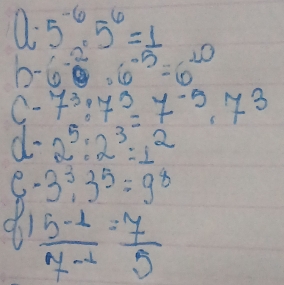 a - 5⁻⁶ · 5⁶ = 1
b - 6⁻² · 6⁻⁵ = 6¹⁰
c - 7³ : 7⁵ = 7⁻⁵ · 7³
d - 2⁵ : 2³ = 1²
e - 3³ · 3⁵ = 9⁸
f) 5⁻¹ = 7
7⁻¹ 5